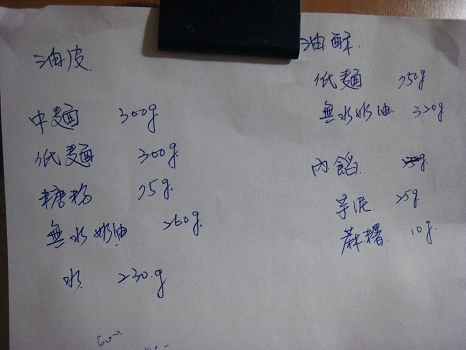 油皮
中麵 300g
低麵 300g
糖粉 75g
無水奶油 260g
水 230g
油酥
低麵 750g
無水奶油 320g
內餡
芋泥 25g
麻糬 10g